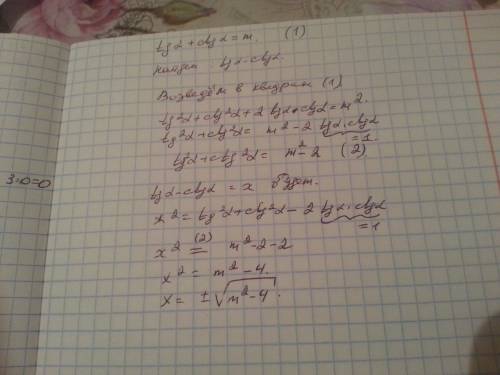 tgα + ctgα = m. (1)
Найти tgα - ctgα.
Возведём в квадрат (1)
tg²α + ctg²α + 2 tgα · ctgα = m².
tg²α + ctg²α = m² - 2 tgα · ctgα
= 1
tg²α + ctg²α = m² - 2 (2)
3·0=0
tgα - ctgα = x будет.
x² = tg²α + ctg²α - 2 tgα · ctgα
= 1
x² (2)= m² - 2 - 2
x² = m² - 4.
x = ± √m² - 4.